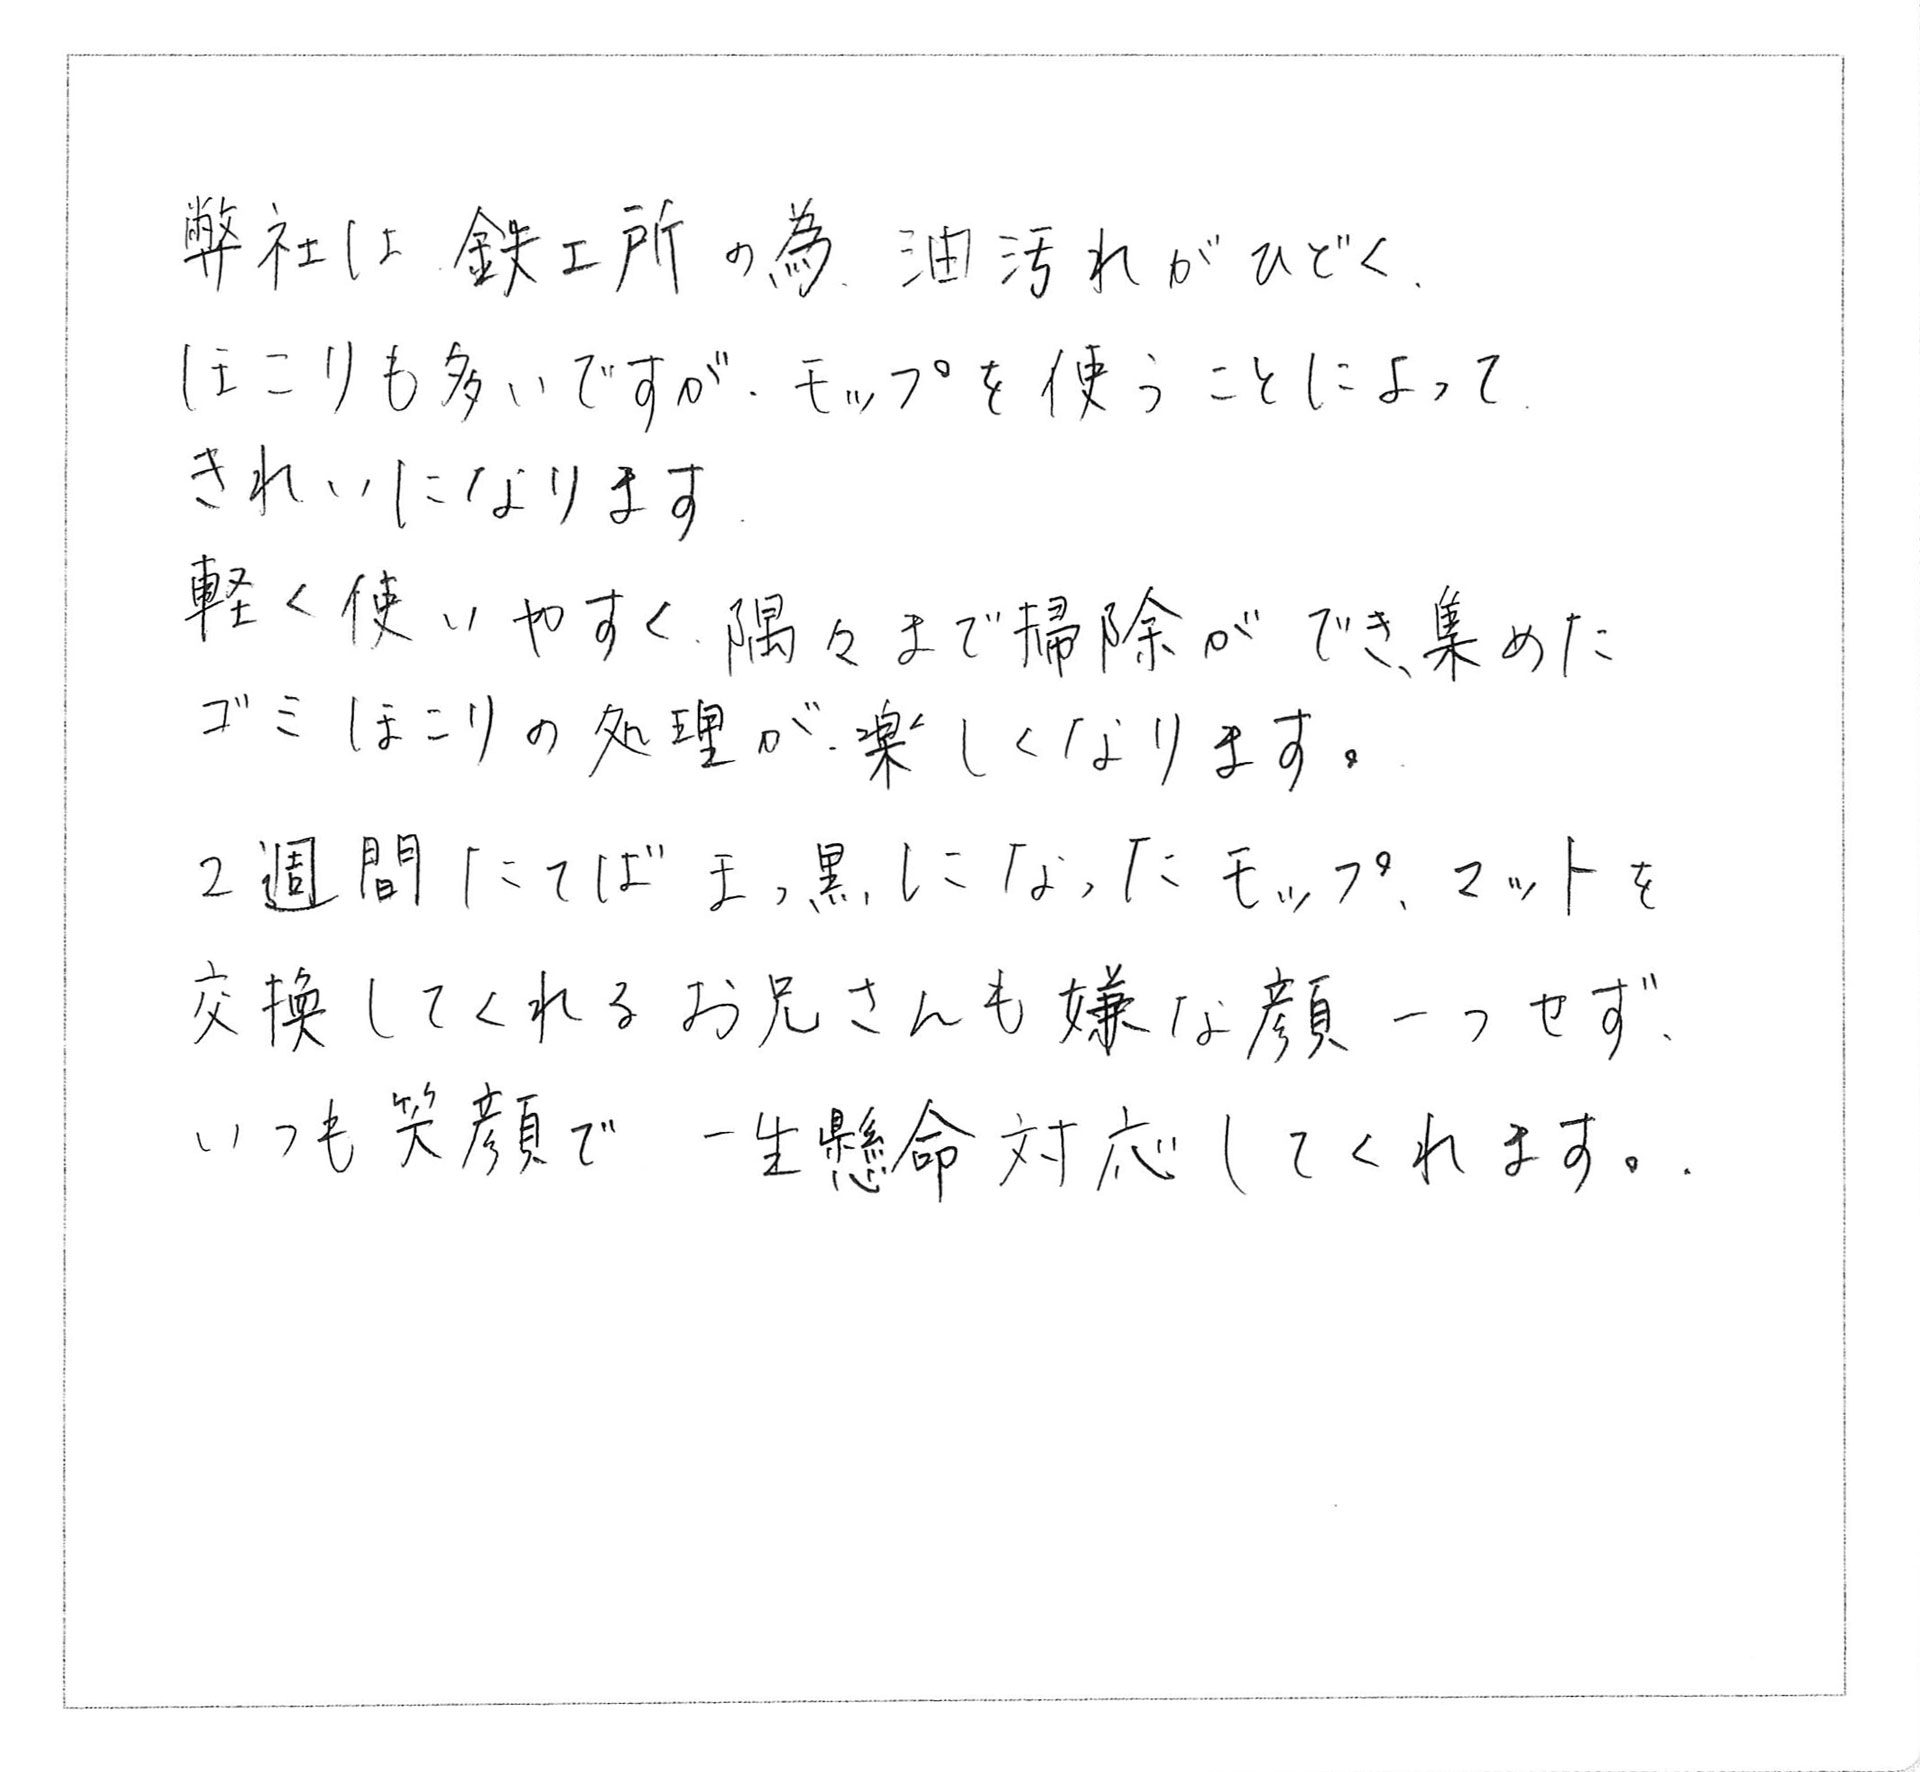 弊社は鉄工所の為、油汚れがひどく、
ほこりも多いですが、モップを使うことによって
きれいになります。
軽く使いやすく、隅々まで掃除ができ、集めた
ゴミほこりの処理が楽しくなります。
2週間たてばまっ黒になったモップ、マットを
交換してくれるお兄さんも嫌な顔一つせず、
いつも笑顔で一生懸命対応してくれます。